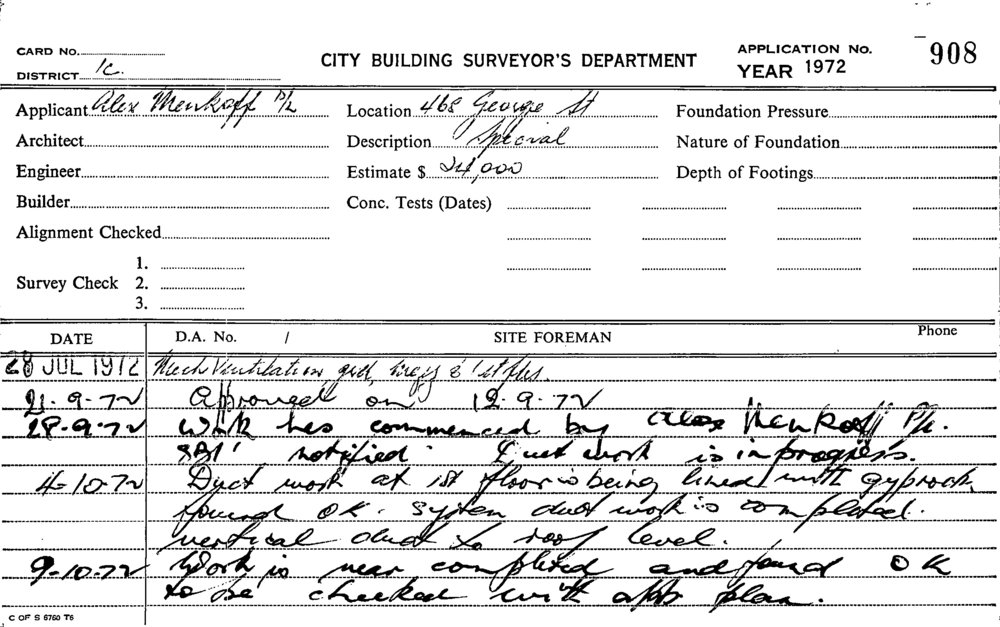 CARD No.
DISTRICT 1c.
CITY BUILDING SURVEYOR'S DEPARTMENT
APPLICATION No. 908
YEAR 1972
Applicant Alex Menkoff P/L
Location 468 George St
Foundation Pressure
Architect
Description Special
Nature of Foundation
Engineer
Estimate $ 24,000
Depth of Footings
Builder
Conc. Tests (Dates)
Alignment Checked
Survey Check
1.
2.
3.
DATE
D.A. No. /
SITE FOREMAN
Phone
28 JUL 1972 Mech Ventilation grd, & 1st flrs.
21.9.72 Approved on 12.9.72
28.9.72 Work has commenced by Alex Menkoff P/L.
SBI notified. Duct work is in progress.
4-10-72 Duct work at 1st floor is being lined with gyprock,
found OK. System duct work is completed.
vertical duct to roof level.
9-10-72 Work is near completed and found OK
to be checked with app plan.
C OF S 6760 T6